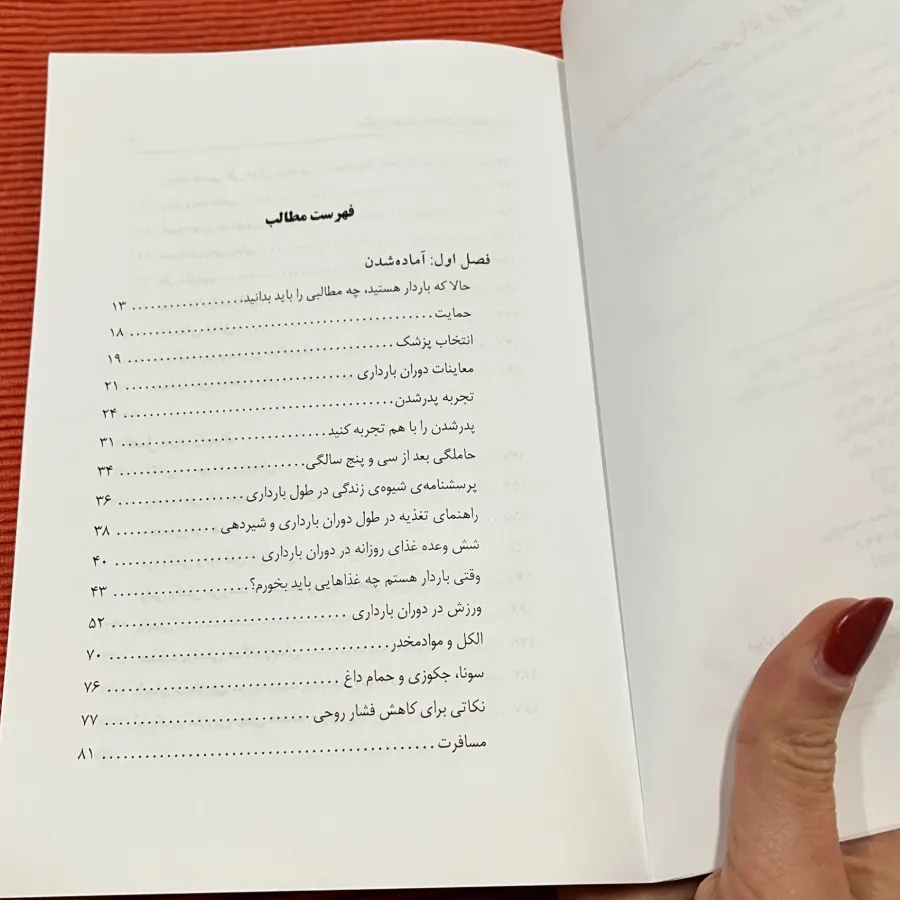 فهرست مطالب
فصل اول: آماده‌شدن
حالا که باردار هستید، چه مطالبی را باید بدانید. ۱۳
حمایت ۱۸
انتخاب پزشک ۱۹
معاینات دوران بارداری ۲۱
تجربه پدرشدن ۲۴
پدرشدن را با هم تجربه کنید ۳۱
حاملگی بعد از سی و پنج سالگی ۳۴
پرسشنامه‌ی شیوه‌ی زندگی در طول بارداری ۳۶
راهنمای تغذیه در طول دوران بارداری و شیردهی ۳۸
شش وعده غذای روزانه در دوران بارداری ۴۰
وقتی باردار هستم چه غذاهایی باید بخورم؟ ۴۳
ورزش در دوران بارداری ۵۲
الکل و موادمخدر ۷۰
سونا، جکوزی و حمام داغ ۷۶
نکاتی برای کاهش فشار روحی ۷۷
مسافرت ۸۱